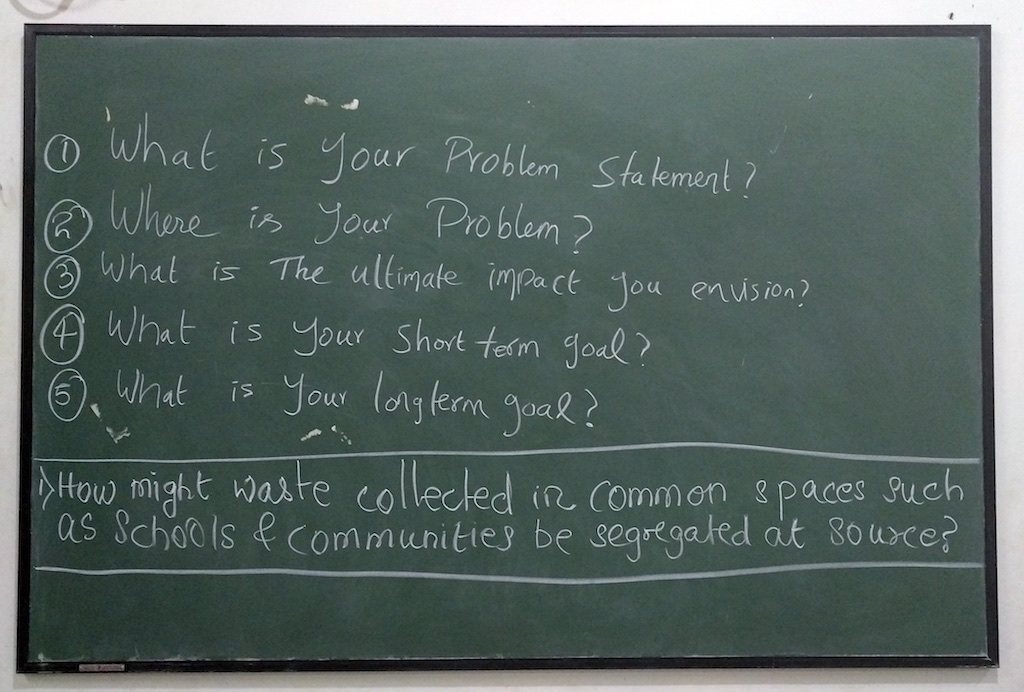 ① What is your Problem Statement?
② Where is your Problem?
③ What is The ultimate impact you envision?
④ What is your short term goal?
⑤ What is your longterm goal?
1) How might waste collected in common spaces such
as schools & communities be segregated at source?